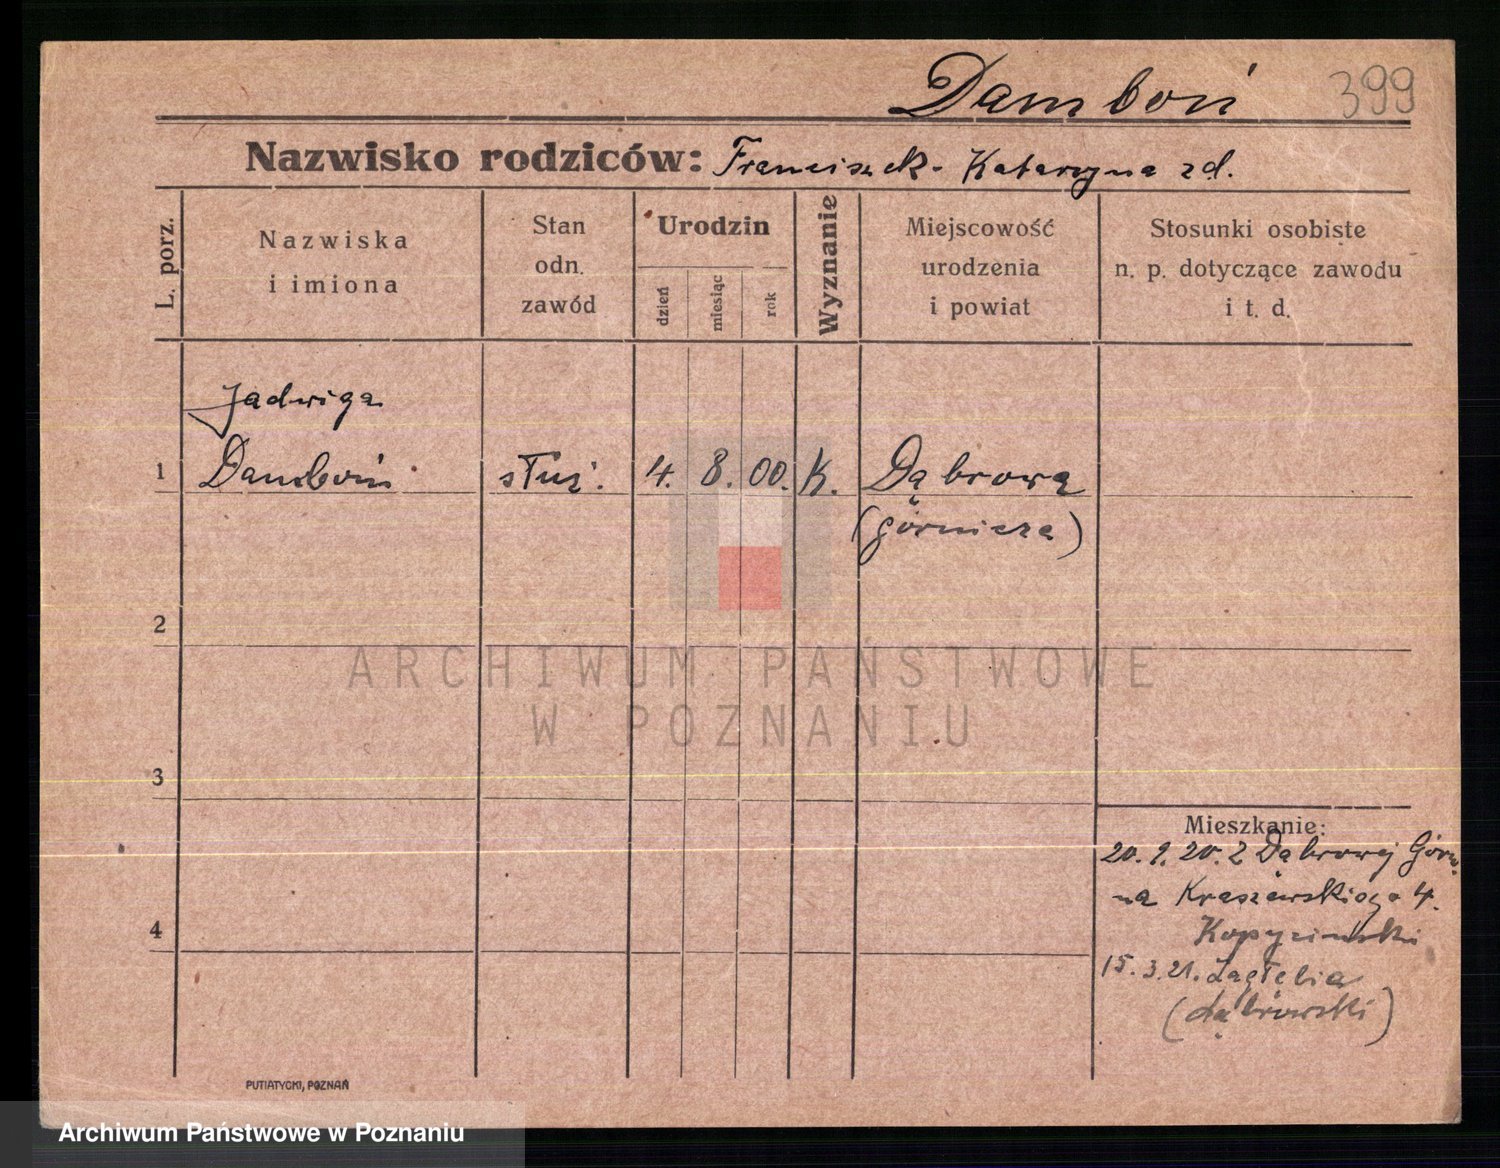 Damboń 399
Nazwisko rodziców: Franciszek - Katarzyna zd.
L. porz.
Nazwiska
i imiona
Stan
odn.
zawód
Urodzin
dzień
miesiąc
rok
Wyznanie
Miejscowość
urodzenia
i powiat
Stosunki osobiste
n. p. dotyczące zawodu
i t. d.
Jadwiga
1 Damboń służ. 4. 8. 00. K. Dąbrowa
(górnicza)
2
3
4
Mieszkanie:
20. 9. 20. Z Dąbrowej Górn.
na Kraszewskiego 4.
15. 3. 21. Zagłębia
(dąbrowski)
PUTIATYCKI, POZNAŃ
ARCHIWUM PAŃSTWOWE
W POZNANIU
Archiwum Państwowe w Poznaniu